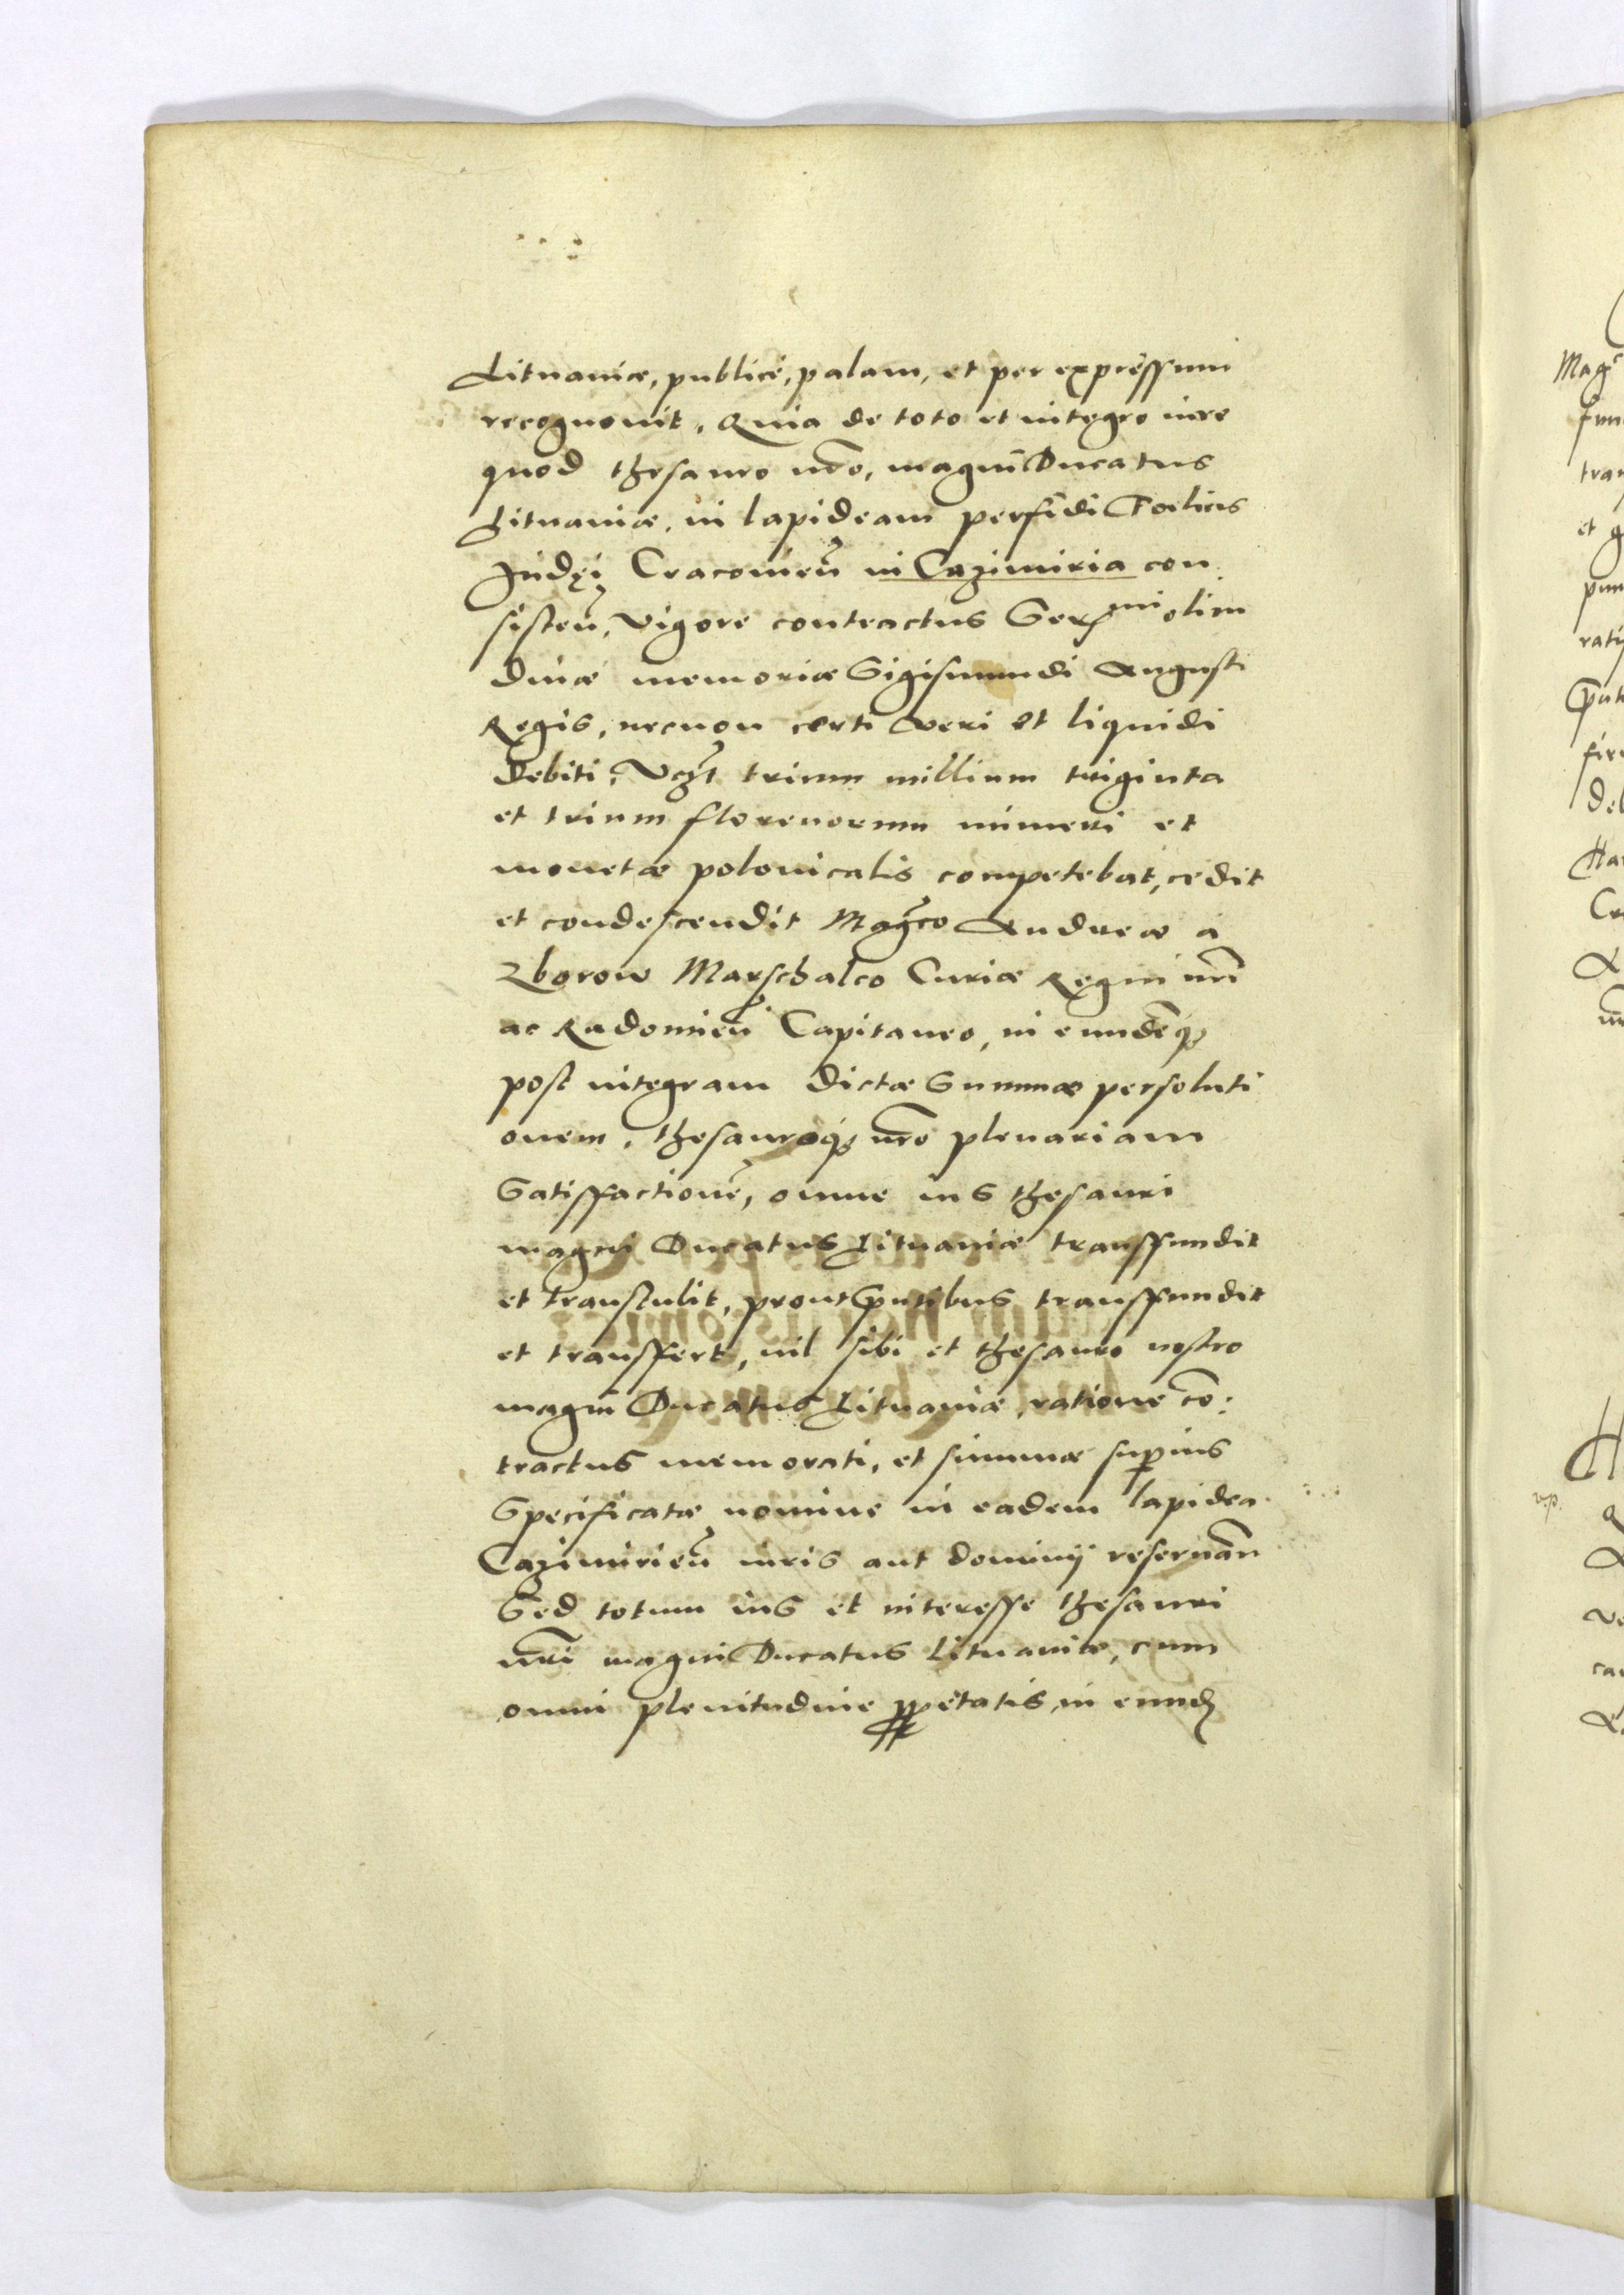 Lituaniæ, publicè, palam, et per expressum
recognouit, Quia de toto et integro iure
quod thesauro nrō, magni Ducatus
Lituaniæ, in lapideam perfidi Foelicis
Judęi Cracouien̄ in Cazimiria con
sisten̄, vigore contractus Serᵐⁱ olim
diuæ memoriæ Sigismundi Augusti
Regis, necnon certi veri et liquidi
debiti, Vczt trium millium triginta
et trium florenorum numeri et
monetæ polonicalis competebat, cedit
et condescendit Magco Andreæ à
Zborow Marschalco Curiæ Regni nrī
ac Radomien̄ Capitaneo, in eundēq3
post integram dictæ Summæ persoluti
onem, thesauroq3 nrō plenariam
Satisfactionē, omne ius thesauri
magni Ducatus Lituaniæ transfundit
et transtulit, prout p̄ntibus transfundit
et transfert, nil sibi et thesauro nostro
magni Ducatus Lituaniæ, ratione cō:
tractus memorati, et summæ superius
Specificatæ nomine in eadem lapidea
Cazimirien̄ iuris aut dominij reseruān
Sed totum ius et interesse thesauri
nrī magni Ducatus Lituaniæ, cum
omni plenitudine ppētatis, in eund